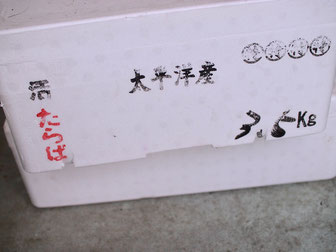 太平洋産
活
たらば
3.5Kg